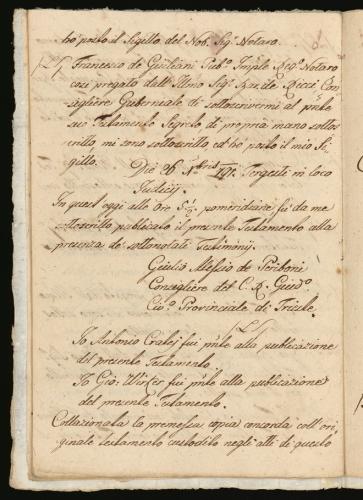 hò posto il Sigillo del Nob. Sig. Notaro.
LS Francesco de Giuliani Pub.º Imple Reg.º Notaro
così pregato dall' Illmo Sig.r Bande Ricci Con
sigliere Guberniale di sottoscrivermi al pnte
suo Testamento Segreto di propria mano sottos
critto, mi sono sottoscritto ed hò posto il mio Si
gillo.
Die 26 9bris Tergesti in loco
Judicij.
In quest' oggi alle ore pomeridiane fu da me
sottoscritto publicato il presente Testamento alla
presenza de' sottonotati Testimonij.
Giulio Alessio de Periboni
Consigliere del C. R. Giud.º
Civ.º Provinciale di Trieste.
LS
Io Antonio fui pnte alla publicazione
del presente Testamento.
Io Gio: fui pnte alla publicazione
del presente Testamento.
Collazionata la premessa copia concorda coll' ori
ginale testamento custodito negli atti di questo